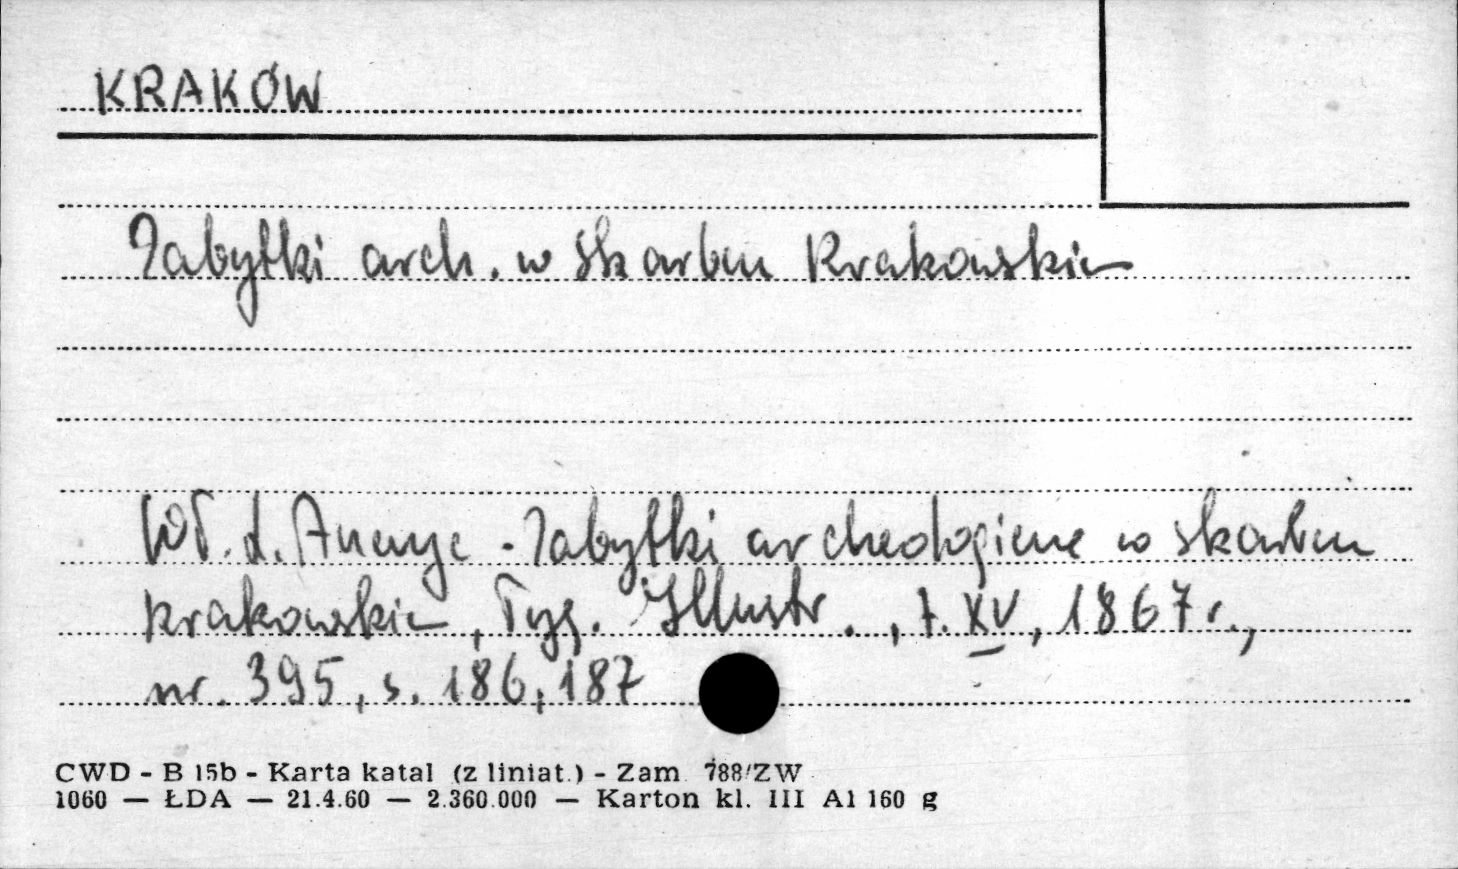 KRAKÓW
Zabytki arch. w skarbcu Krakowskim
Wł. L. Anczyc - Zabytki archeologiczne w skarbcu
krakowskim, Tyg. Illustr., t. XV, 1867 r.,
nr. 395, s. 186, 187
CWD - B 15b - Karta katal (z liniat.) - Zam. 788/ZW
1060 — ŁDA — 21.4.60 — 2.360.000 — Karton kl. III A1 160 g